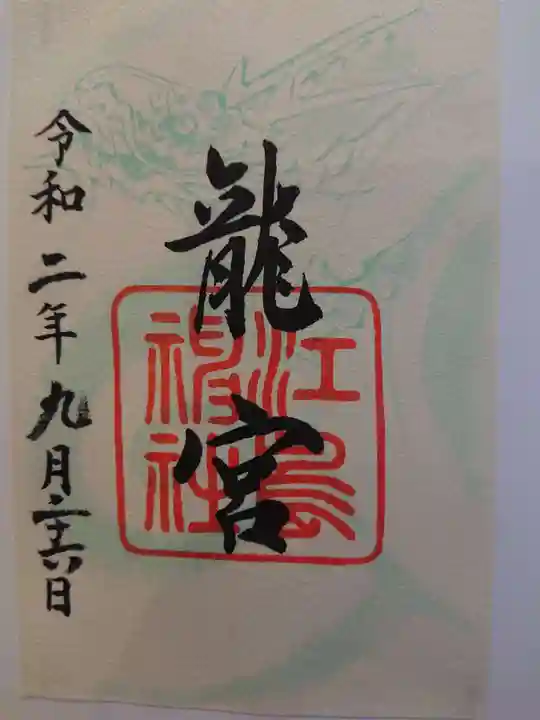 龍宮
江島神社
令和二年九月二十六日